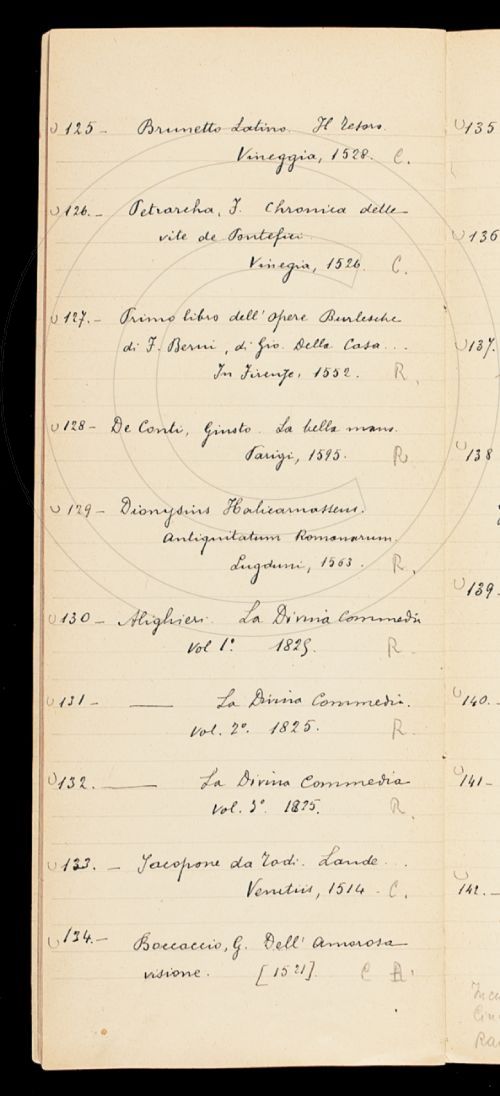 125 - Brunetto Latino. Il Tesoro.
Vineggia, 1528. C.
126. - Petrarcha, F. Chronica delle
vite de Pontefici
Vinegia, 1526 C.
127. - Primo libro dell'opere Burlesche
di F. Berni, di Gio. Della Casa...
In Firenze, 1552. R.
128 - De Conti, Giusto. La bella mano.
Parigi, 1595. R
129 - Dionysius Halicarnasseus.
Antiquitatum Romanarum.
Lugduni, 1563. R.
130 - Alighieri. La Divina Commedia
vol 1º. 1825. R.
131 - —— La Divina Commedia.
vol. 2º. 1825. R.
132. —— La Divina Commedia
vol. 3º. 1825. R.
133. - Jacopone da Todi. Laude...
Venetiis, 1514. C.
134. - Boccaccio, G. Dell' Amorosa
visione. [1521]. C R.
135
136
137.
138
139.
140. -
141 -
142. -